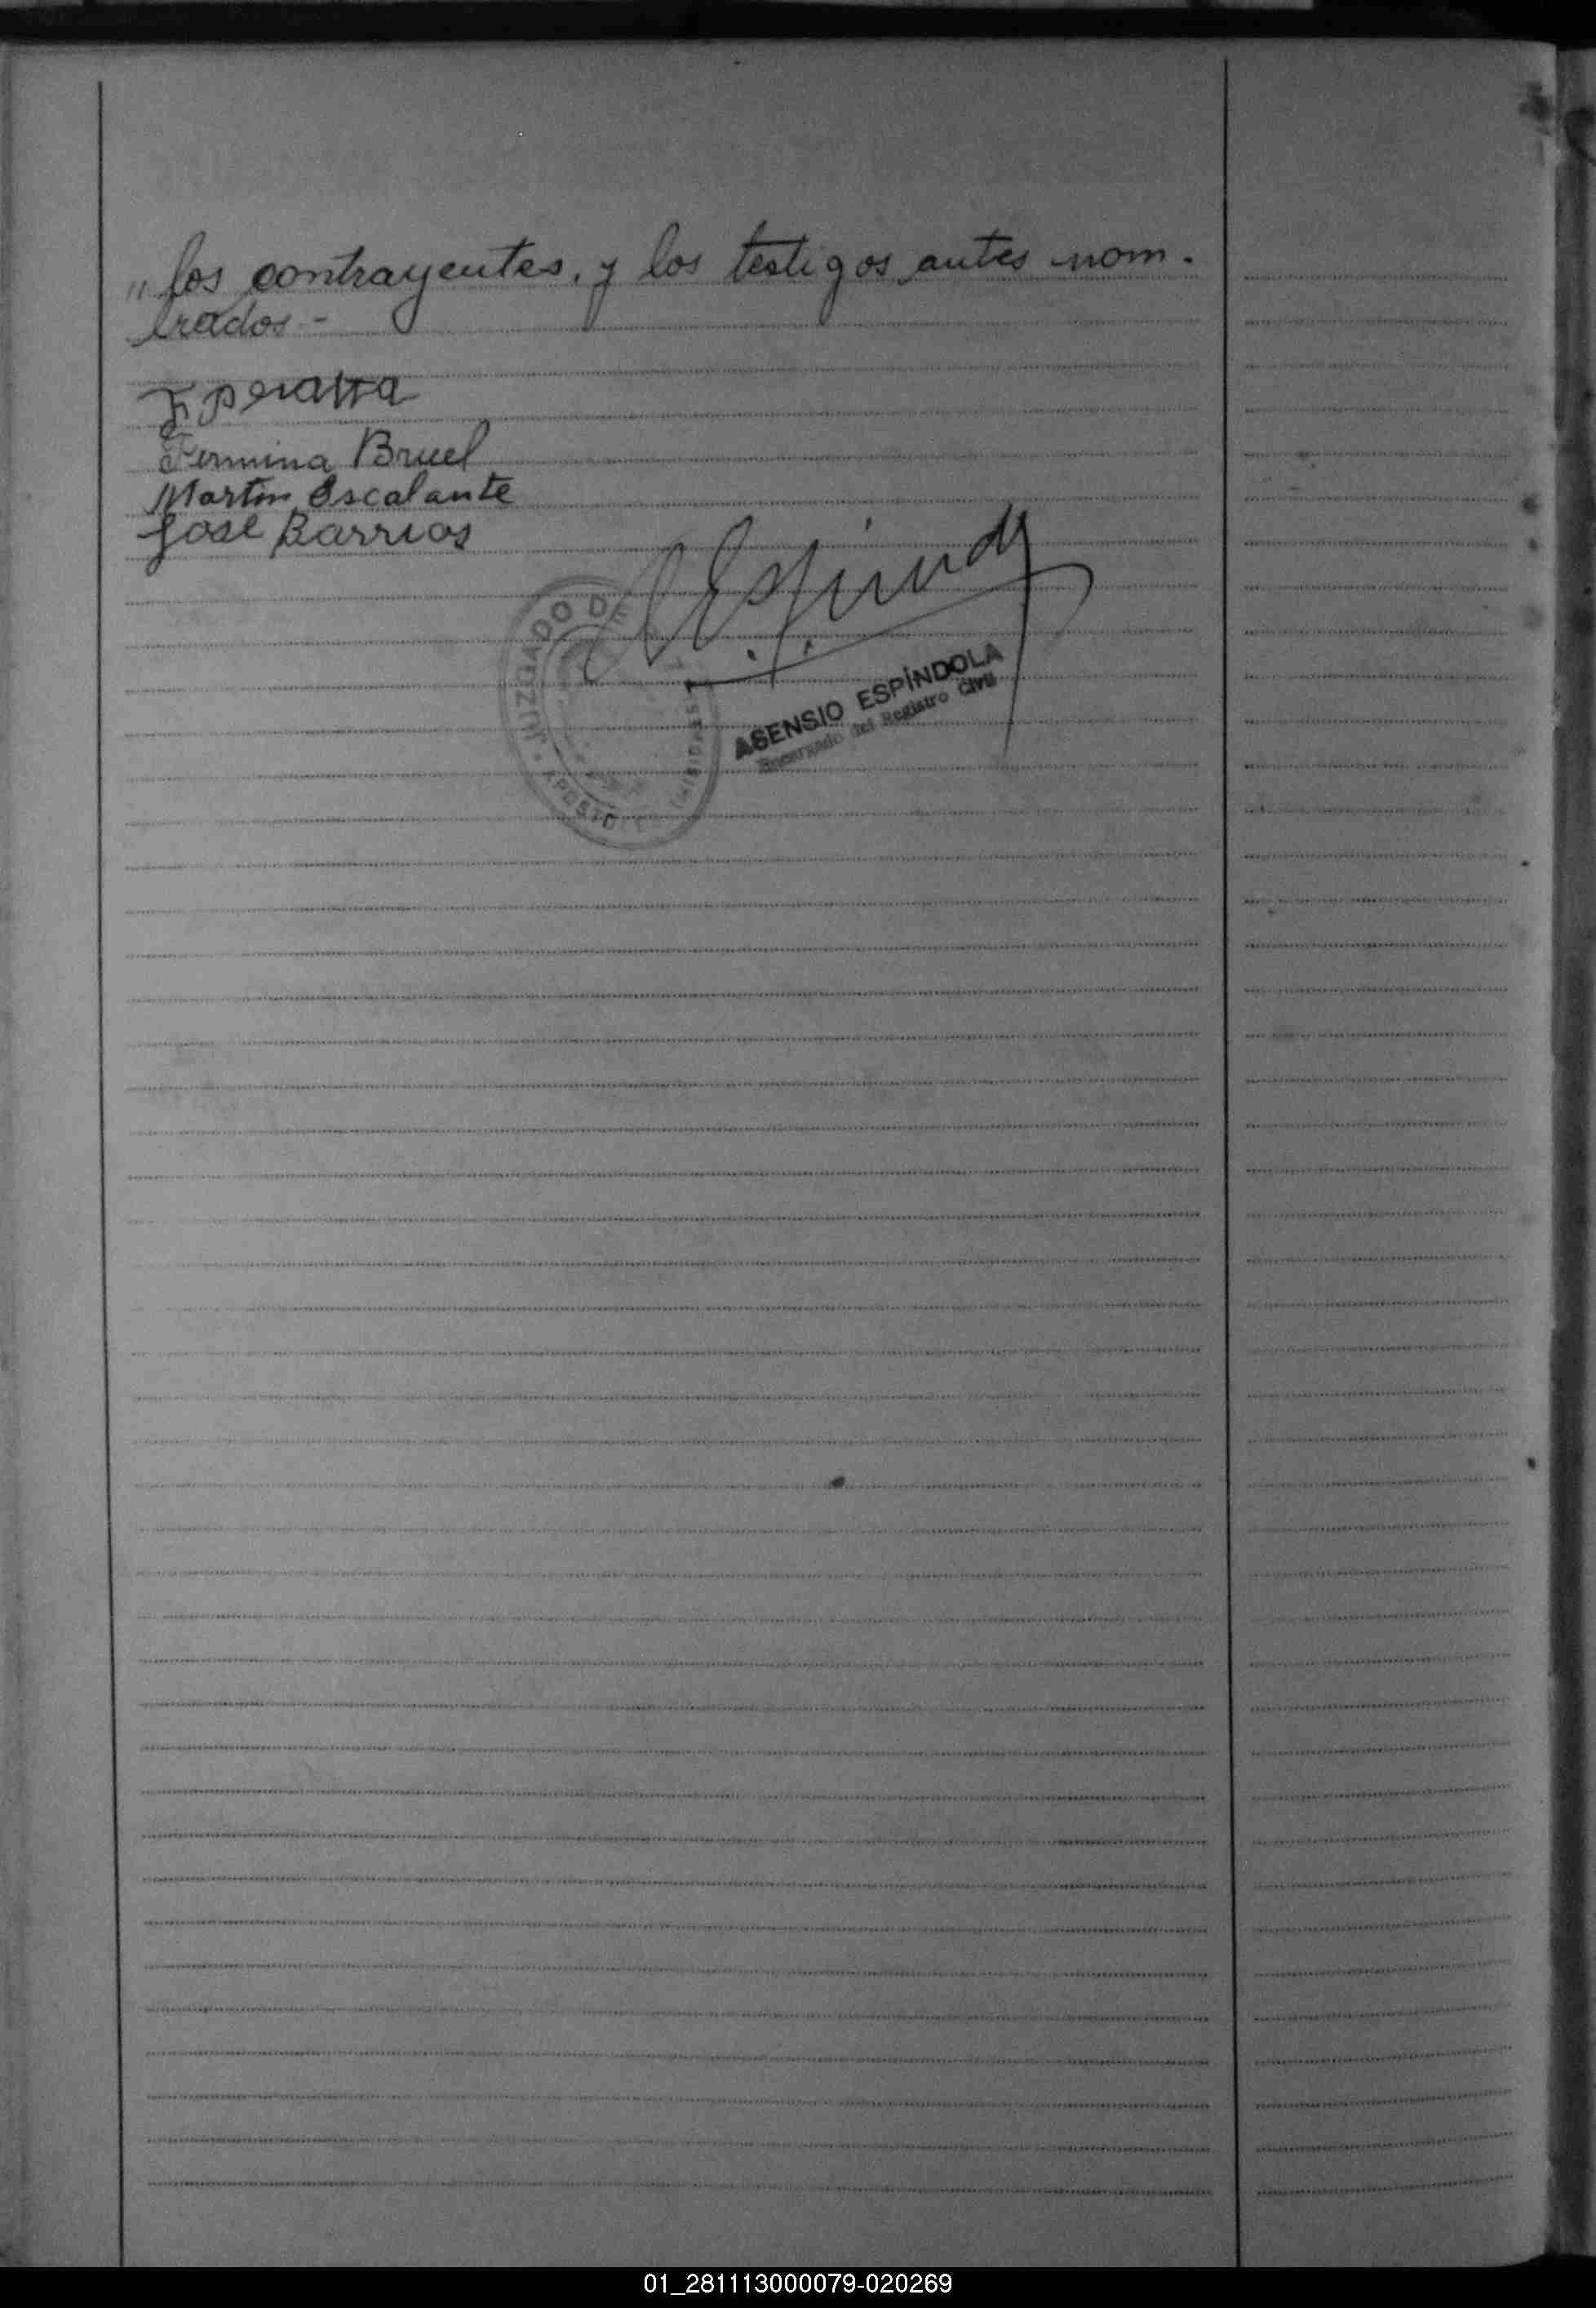 "los contrayentes, y los testigos antes nom-
brados.-
F Peralta
Fermina Bruel
Martin Escalante
José Barrios
AEspindola
JUZGADO DE
APOSTOLES (MISIONES)
ASENSIO ESPÍNDOLA
Encargado del Registro Civil
01_281113000079-020269